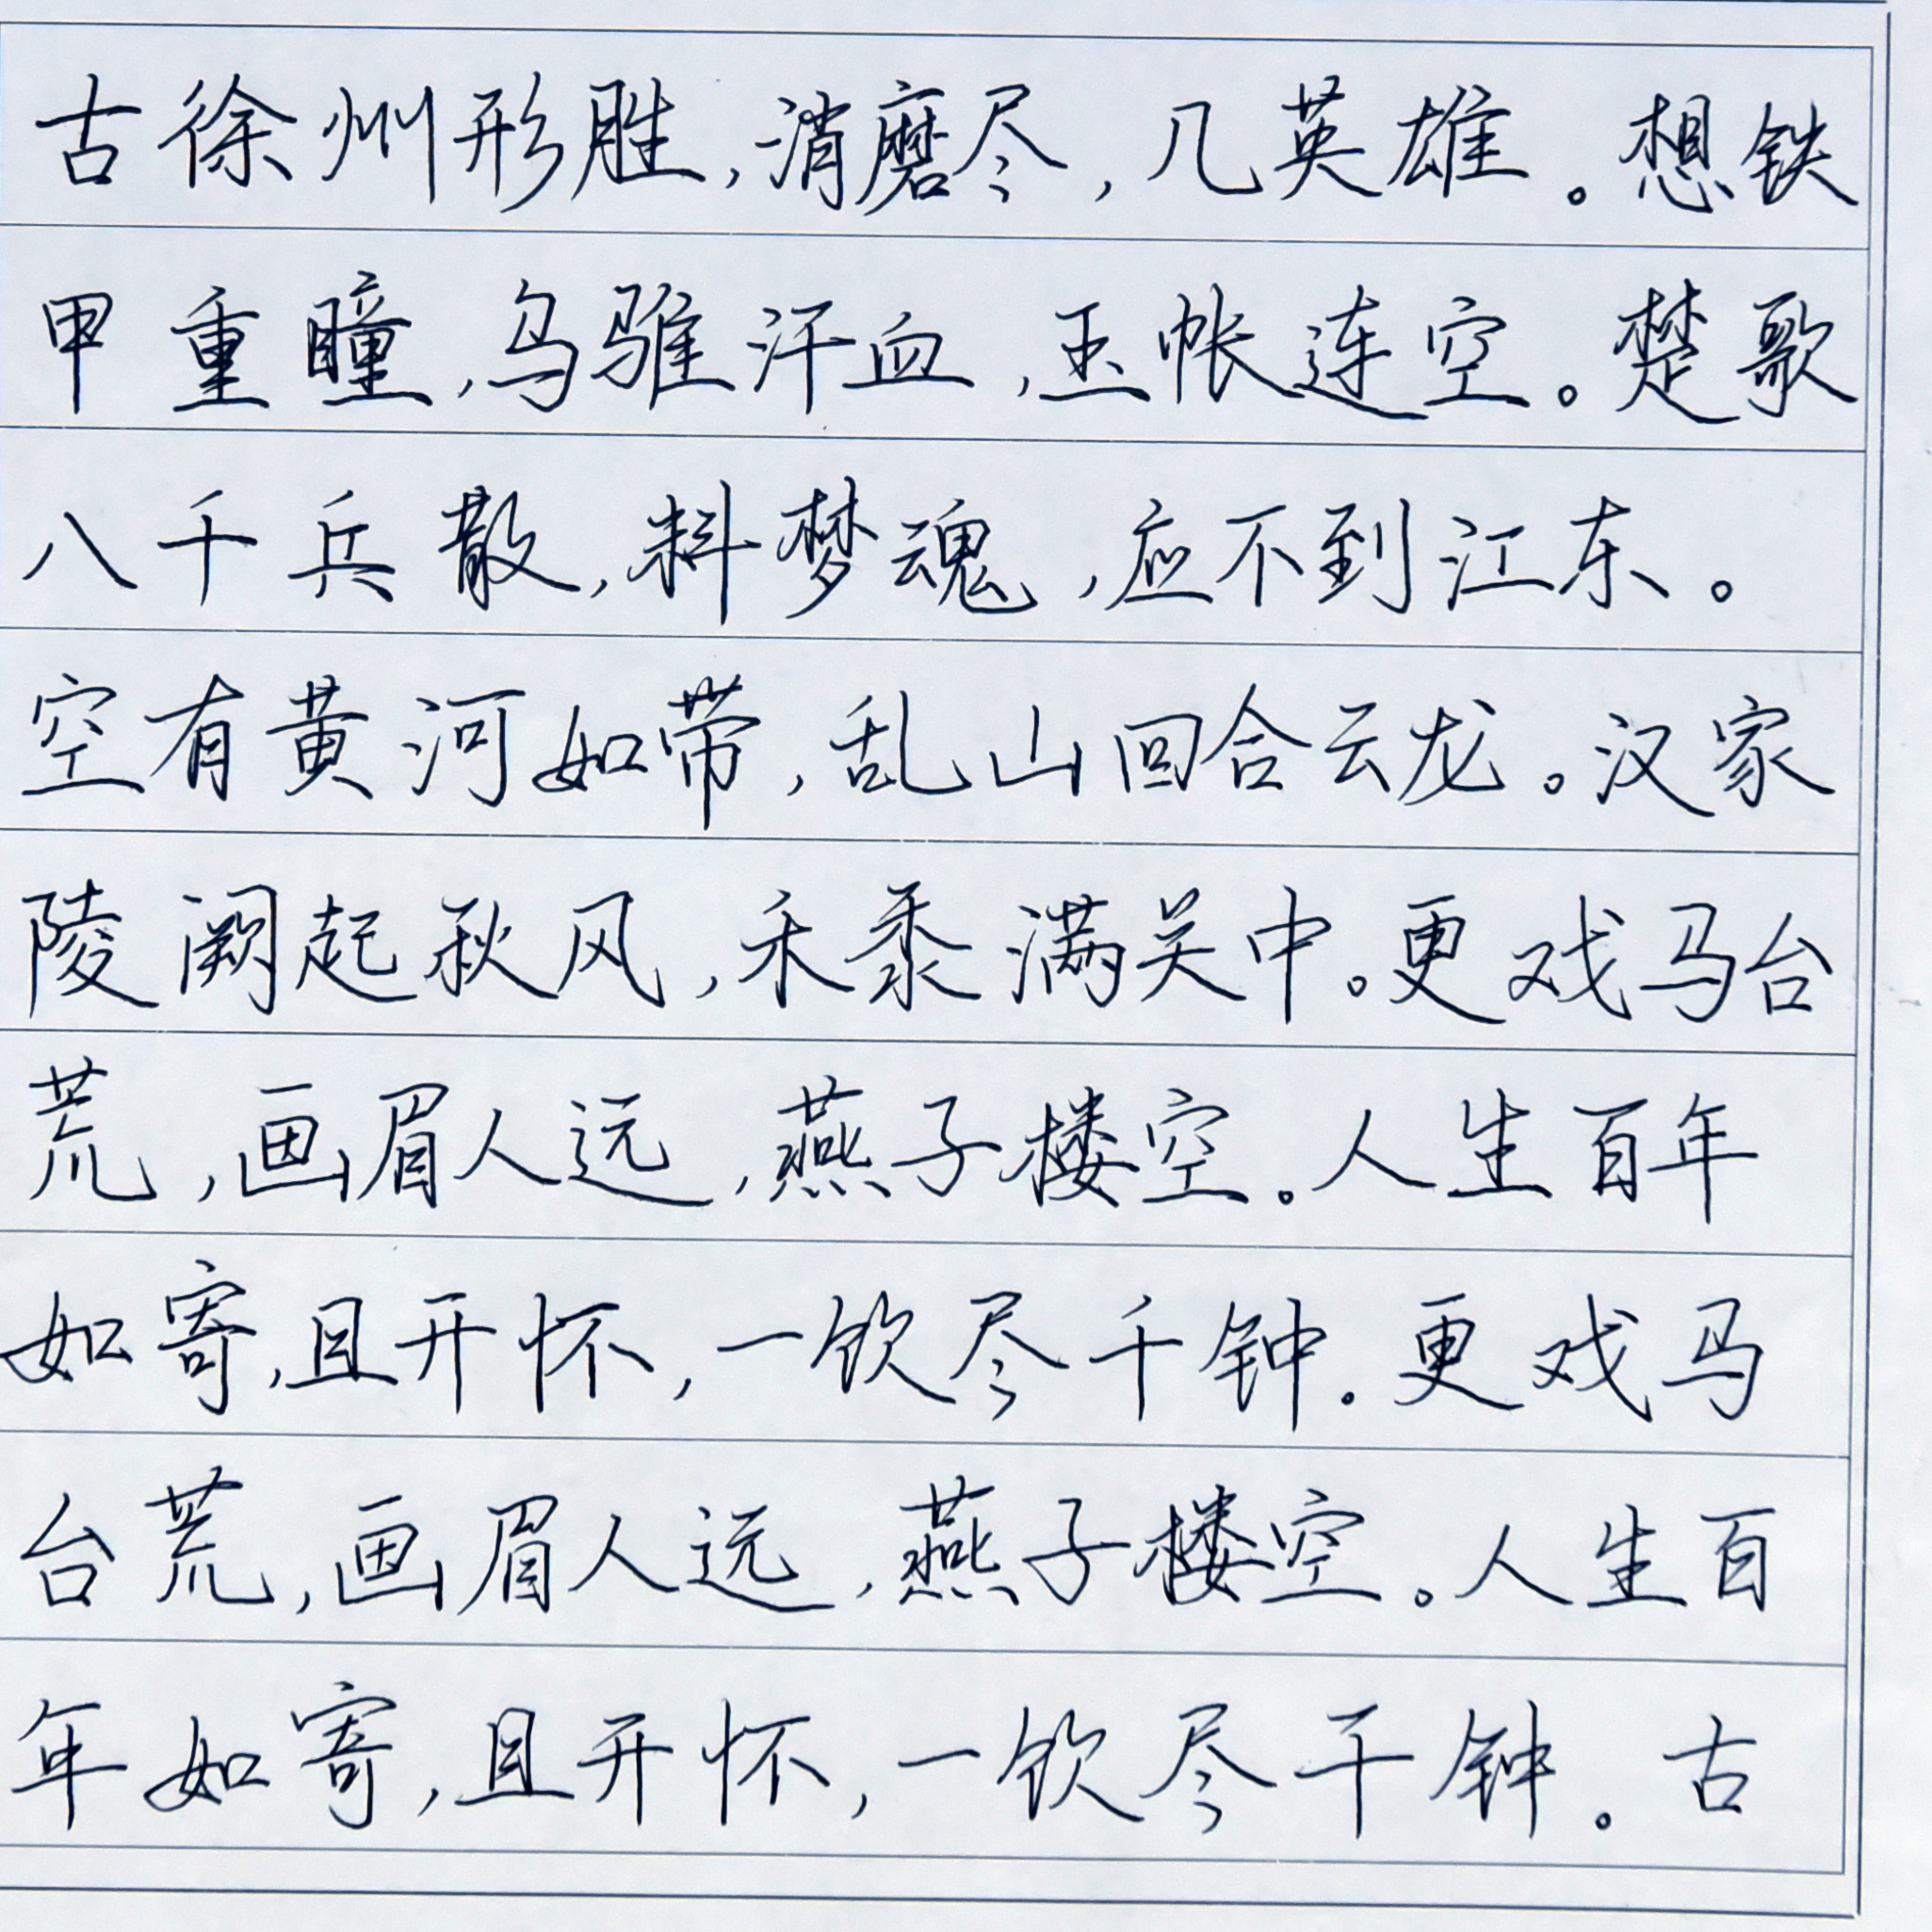 古徐州形胜,消磨尽,几英雄。想铁
甲重瞳,乌骓汗血,玉帐连空。楚歌
八千兵散,料梦魂,应不到江东。
空有黄河如带,乱山回合云龙。汉家
陵阙起秋风,禾黍满关中。更戏马台
荒,画眉人远,燕子楼空。人生百年
如寄,且开怀,一饮尽千钟。更戏马
台荒,画眉人远,燕子楼空。人生百
年如寄,且开怀,一饮尽千钟。古